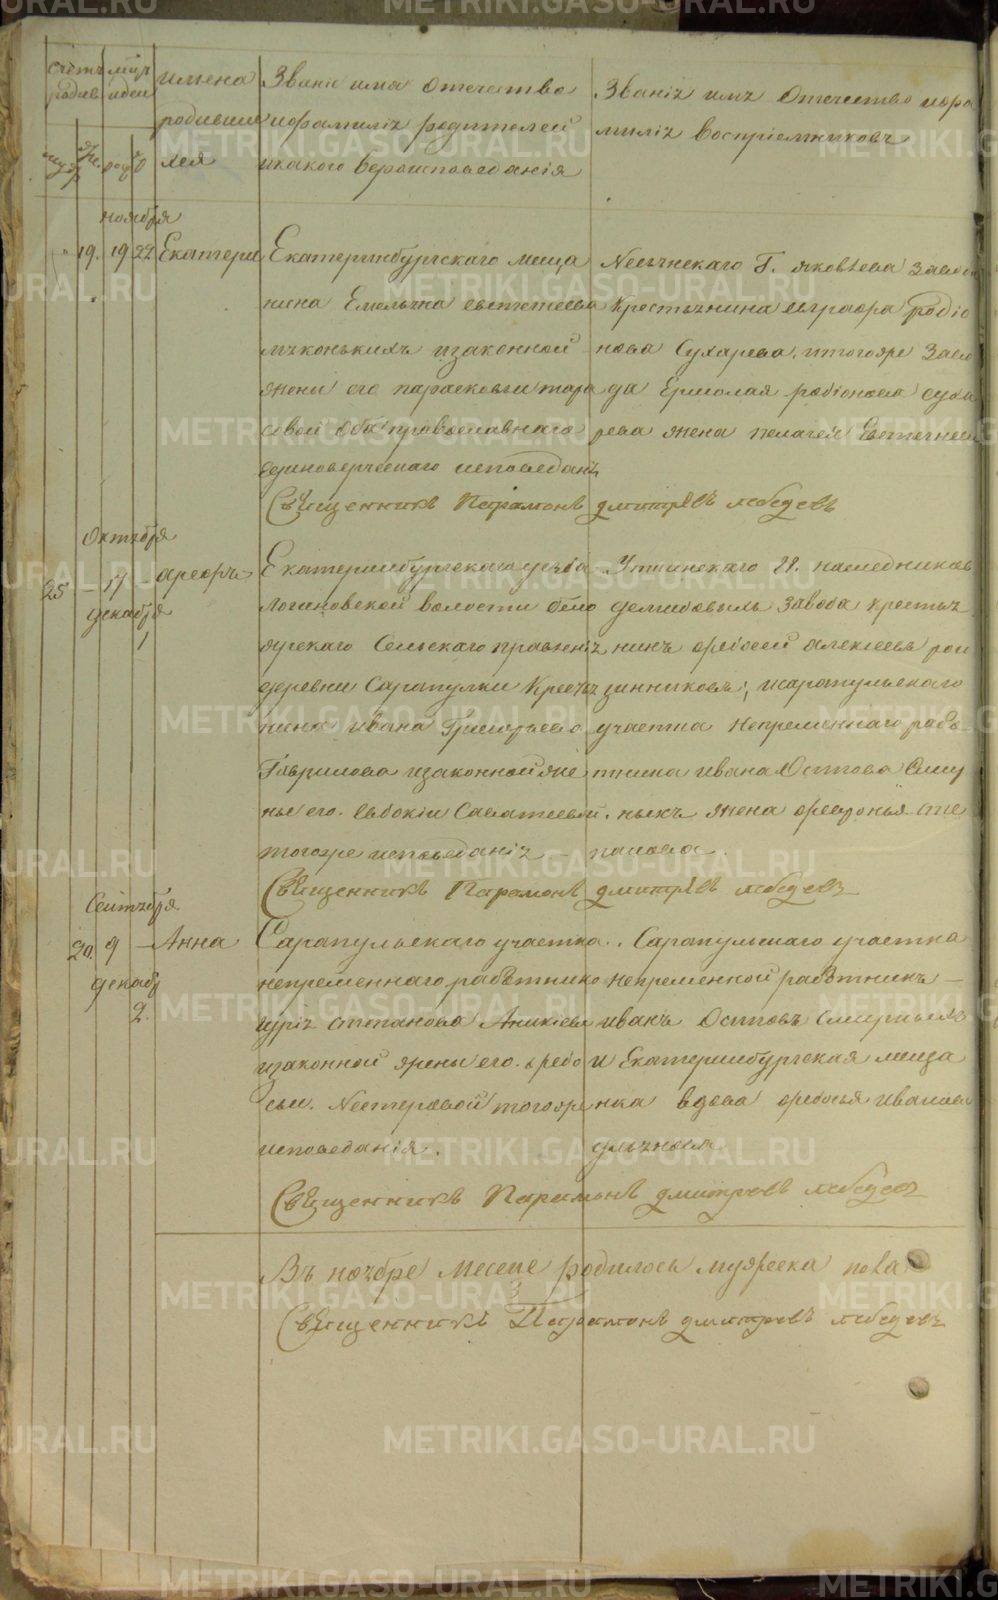 счетъ родив
муж жен
мѣц идни
рож кр
имена родившихся
Званіе имя отечество
ифамилія родителей
икакого вероисповеданія
Званія имя отечество ифа
милія воспріемниковъ
ноября
19. 19 22 Екатери
Екатеринбургскаго меща
нина Емельяна
изаконной
жены его парасковьи тара
совой оба православнаго
единоверческаго исповеданія
Священникъ Парамонъ дмитріевъ лебедевъ
Г. яковлева завода
крестьянина евграфа родіо
нова Сухарева, итогоже заво
да Ермолая родіонова суха
рева жена пелагея Евтегнеева
Октября
25 – 17 – 
декабря
1
Екатеринбургскаго уезда
Логиновской волости бело
ярскаго Сельскаго правленія
деревни Сарапулки Крестья
нина ивана Григорьева
Гаврилова изаконной же
ны его. Евдокіи Саватеевой.
тогоже исповеданія –
Уткинскаго Н. наследниковъ
демидовыхъ завода крестья
нинъ алексеевъ
исарапульскаго
участка Непременнаго рабо
тника ивана Осипова Смир
ныхъ жена февронья сте
панова
Священникъ Парамонъ дмитріевъ лебедевъ
Сентября
20. 9 – Анна
декабря
2.
Сарапульскаго участка.
непременнаго работника
степанова Аникіева
изаконной жены его. федо
сьи. Нестеровой тогоже
исповеданія.
Сарапульскаго участка
непременной работникъ –
иванъ Осиповъ Смирныхъ
и Екатеринбургская меща
нка вдова федосья иванова
ульянова
Священникъ Парамонъ дмитріевъ лебедевъ
Въ ноябре месеце родилось мужеска пола
3
Священникъ Парамонъ дмитріевъ лебедевъ
METRIKI.GASO-URAL.RU